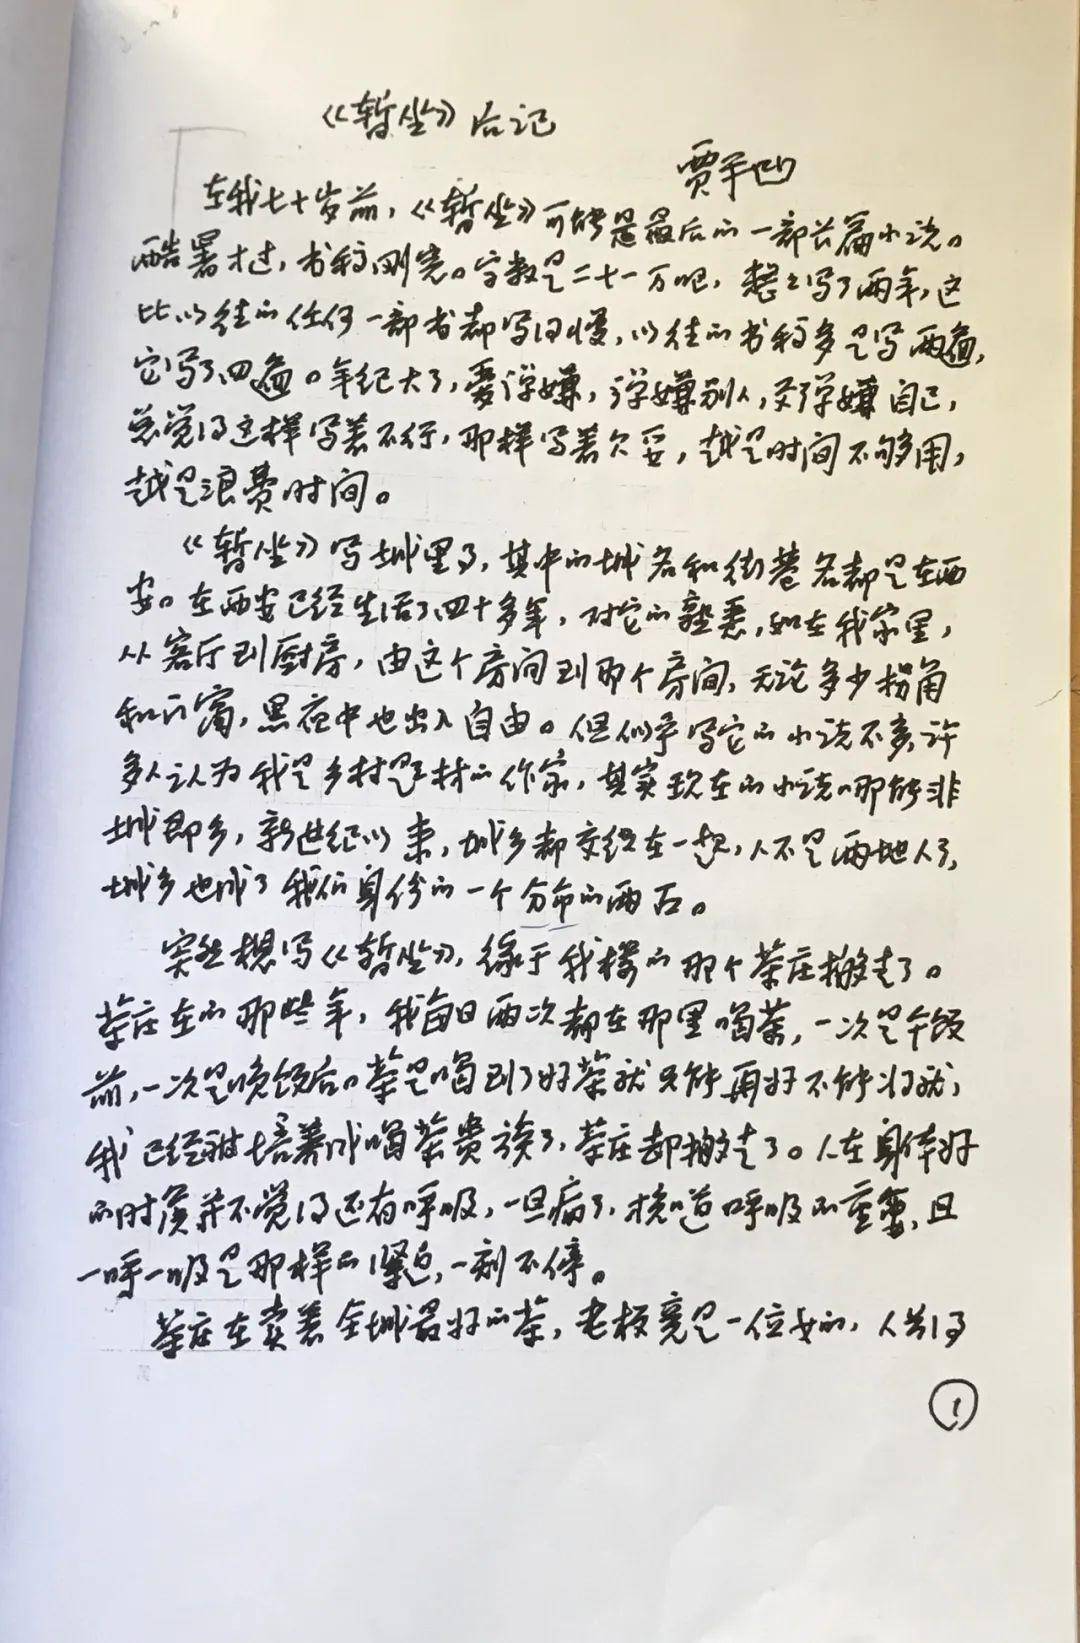 《暂坐》后记
贾平凹
在我七十岁前，《暂坐》可能是最后的一部长篇小说。
酷暑才过，书稿刚完。字数是二十一万吧，整整写了两年，这
比以往的任何一部书都写得慢，以往的书稿多是写两遍，
它写了四遍。年纪大了，爱弹嫌，弹嫌别人，更弹嫌自己，
总觉得这样写着不行，那样写着欠妥，越是时间不够用，
越是浪费时间。
《暂坐》写城里事，其中的城名和街巷名都是在西
安。在西安已经生活了四十多年，对它的熟悉，如在我家里，
从客厅到厨房，由这个房间到那个房间，无论多少拐角
和门窗，黑夜中也出入自由。但似乎写它的小说不多，许
多人认为我是乡村题材的作家，其实现在的小说哪能非
城即乡，新世纪以来，城乡都交织在一起，人不是两地人了，
城乡也成了我们身份的一个分布的两面。
突然想写《暂坐》，缘于我楼的那个茶庄搬走了。
茶庄在的那些年，我每日两次都在那里喝茶，一次是午饭
前，一次是晚饭后。茶是喝到了好茶就只能再好不能将就，
我已经被培养成喝茶贵族了，茶庄却搬走了。人在身体好
的时候并不觉得还有呼吸，一旦病了，才知道呼吸的重要，且
一呼一吸是那样的紧迫，一刻不停。
茶庄在卖着全城最好的茶，老板竟是一位女的，人长得
1